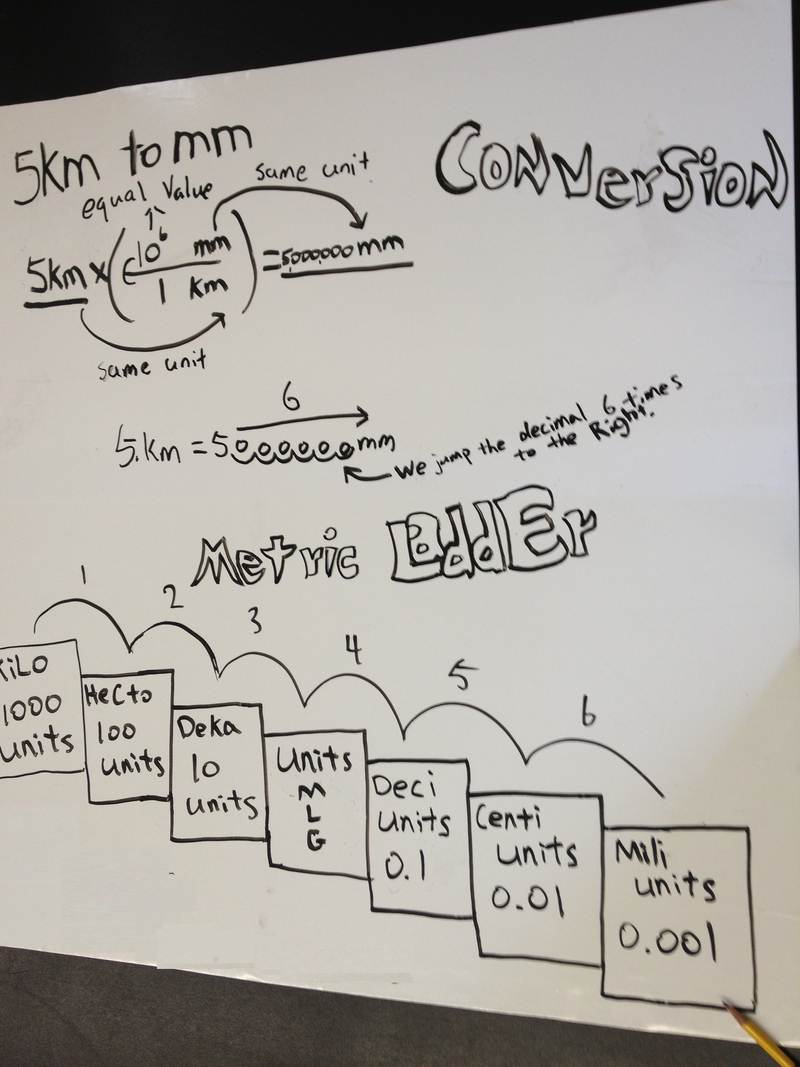 5km to mm
ConVerSioN
equal Value
same unit
5km x (10⁶ mm / 1 km) = 5,000,000 mm
same unit
6
5.km = 5000000mm
We jump the decimal 6 times
to the Right.
Metric LaddEr
1 2 3 4 5 6
KiLO
1000
units
HeCto
100
units
Deka
10
units
Units
M
L
G
Deci
units
0.1
Centi
units
0.01
Mili
units
0.001